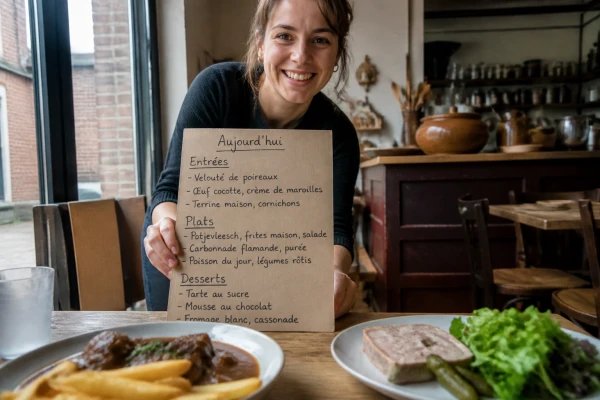 Aujourd'hui
Entrées
- Velouté de poireaux
- Œuf cocotte, crème de maroilles
- Terrine maison, cornichons
Plats
- Potjevleesch, frites maison, salade
- Carbonnade flamande, purée
- Poisson du jour, légumes rôtis
Desserts
- Tarte au sucre
- Mousse au chocolat
- Fromage blanc, cassonade